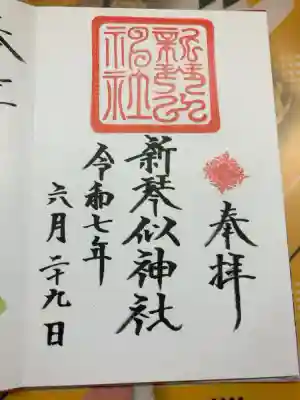 奉拝
新琴似神社
令和七年
六月二十九日
新琴似神社